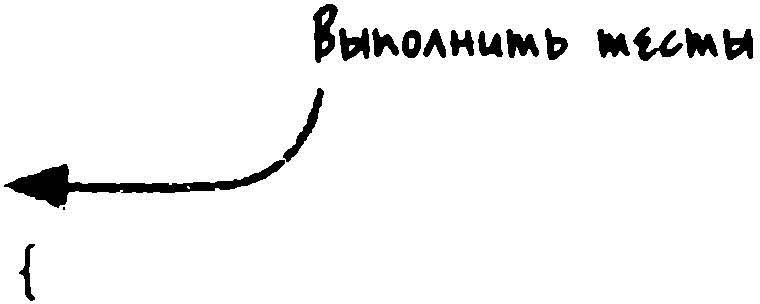 Выполнить тесты
{